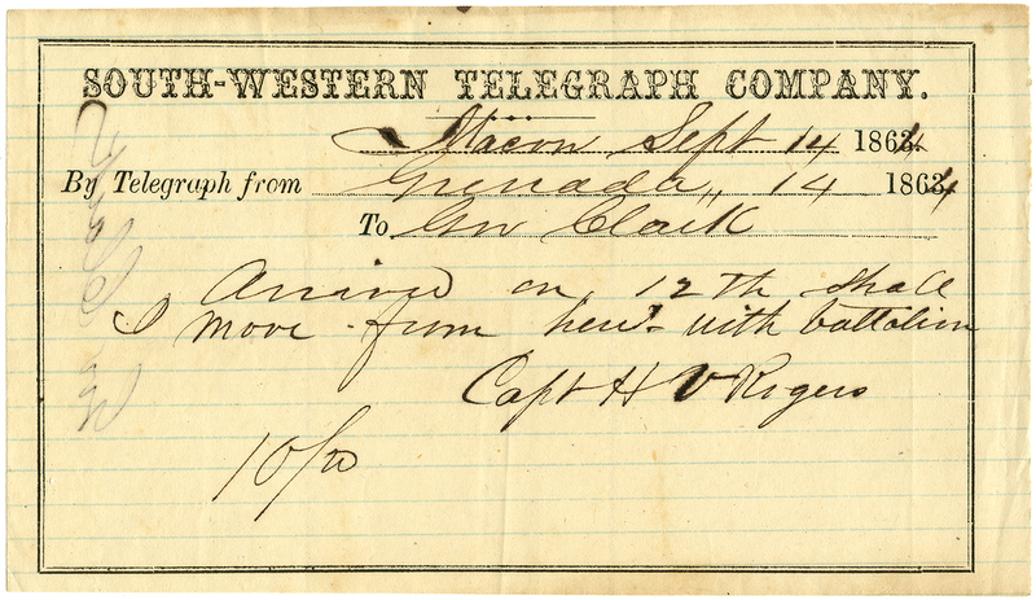 SOUTH-WESTERN TELEGRAPH COMPANY.
Macon Sept 14 1864
By Telegraph from Grenada,, 14 1864
To Gov Clark
Arrived on 12th shall
I move from here with battalion
Capt H V Rogers
10/00